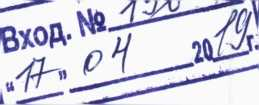 Вход. №
"17" 04 2019г.